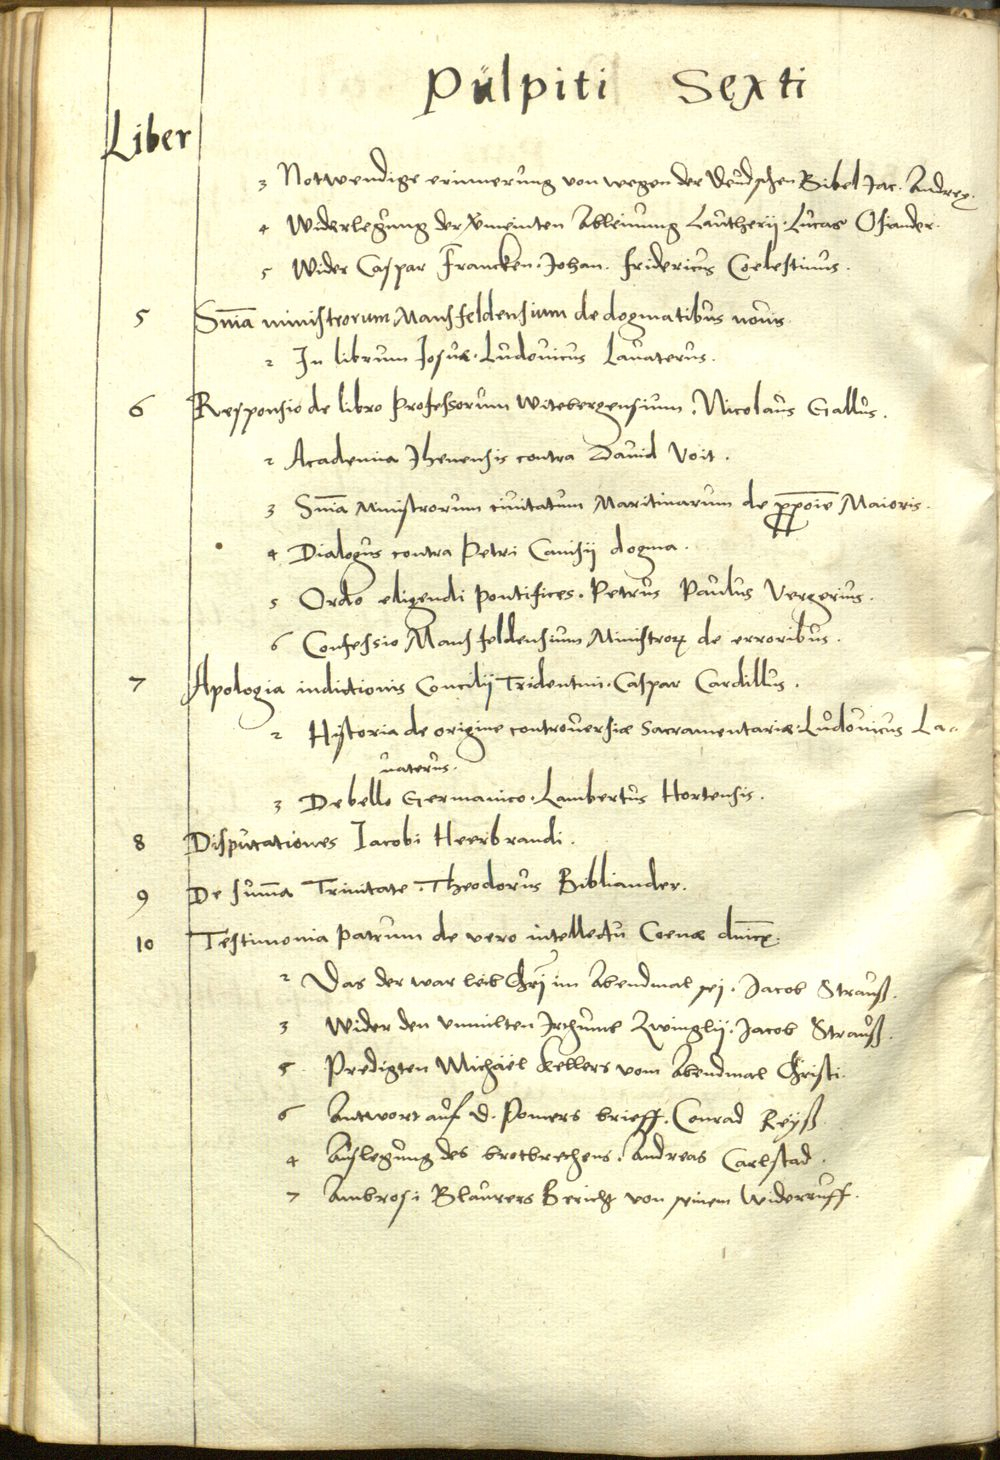 Pulpiti Sexti
Liber
3 Notwendige erinnerung von wegen der Deudschen Bibel Jac. Andreę.
4 Widerlegung der vermeinten Ableinung Lautherii. Lucas Osiander.
5 Wider Caspar Francken. Johan. Fridericus Coelestinus.
5 Sn̄ia ministrorum Mansfeldensium de dogmatibus novis
2 In librum Iosuæ. Ludovicus Lavaterus.
6 Responsio de libro Professorum Witebergensium. Nicolaus Gallus.
2 Academia Jhenensis contra David Voit.
3 Sn̄ia Ministrorum civitatum Maritimarum de Maioris.
4 Dialogus contra Petri Canisij dogma.
5 Ordo eligendi pontifices. Petrus Paulus Vergerius.
6 Confessio Mansfeldensium Ministroꝝ de erroribus.
7 Apologia indictionis Concilij Tridentini. Caspar Cardillus.
2 Historia de origine controversiæ Sacramentariæ. Ludovicus La=
vaterus.
3 De bello Germanico. Lambertus Hortensis.
8 Disputationes Iacobi Heerbrandi.
9 De sum̄a Trinitate. Theodorus Bibliander.
10 Testimonia patrum de vero intellectu Coenæ dn̄icę.
2 Das der war leib Chr̄i im Abendmal sej. Jacob Strauß.
3 Wider den vnmilten Irthumb Zwinglij. Jacob Strauß.
5 Predigten Michäel Kellers vom Abendmal Christi.
6 Antwort auf D. Pomers brieff. Conrad Reyß.
4 Auslegung des brotbrechens. Andreas Carlstad.
7 Ambrosi Blaurers Bericht von seinem Widerruff.